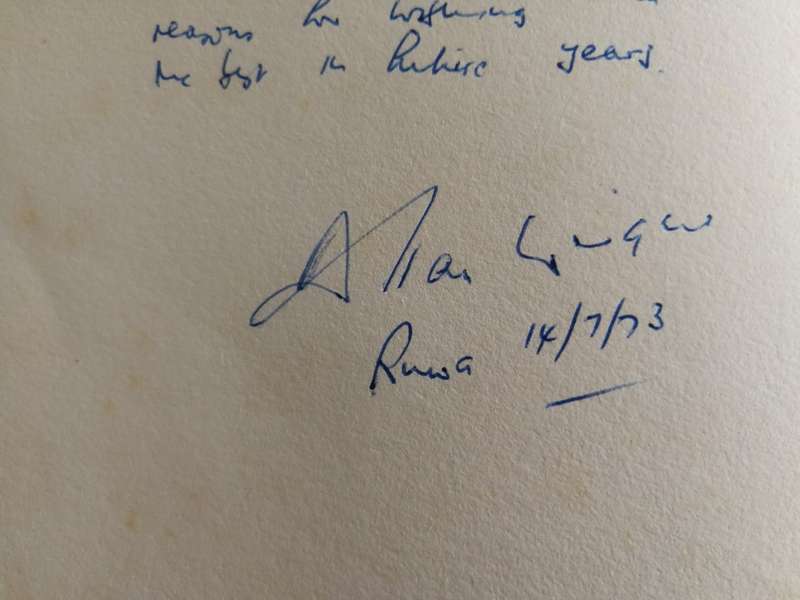 reasons for wishing
the best in future years.
Allan
Ruwa 14/7/73